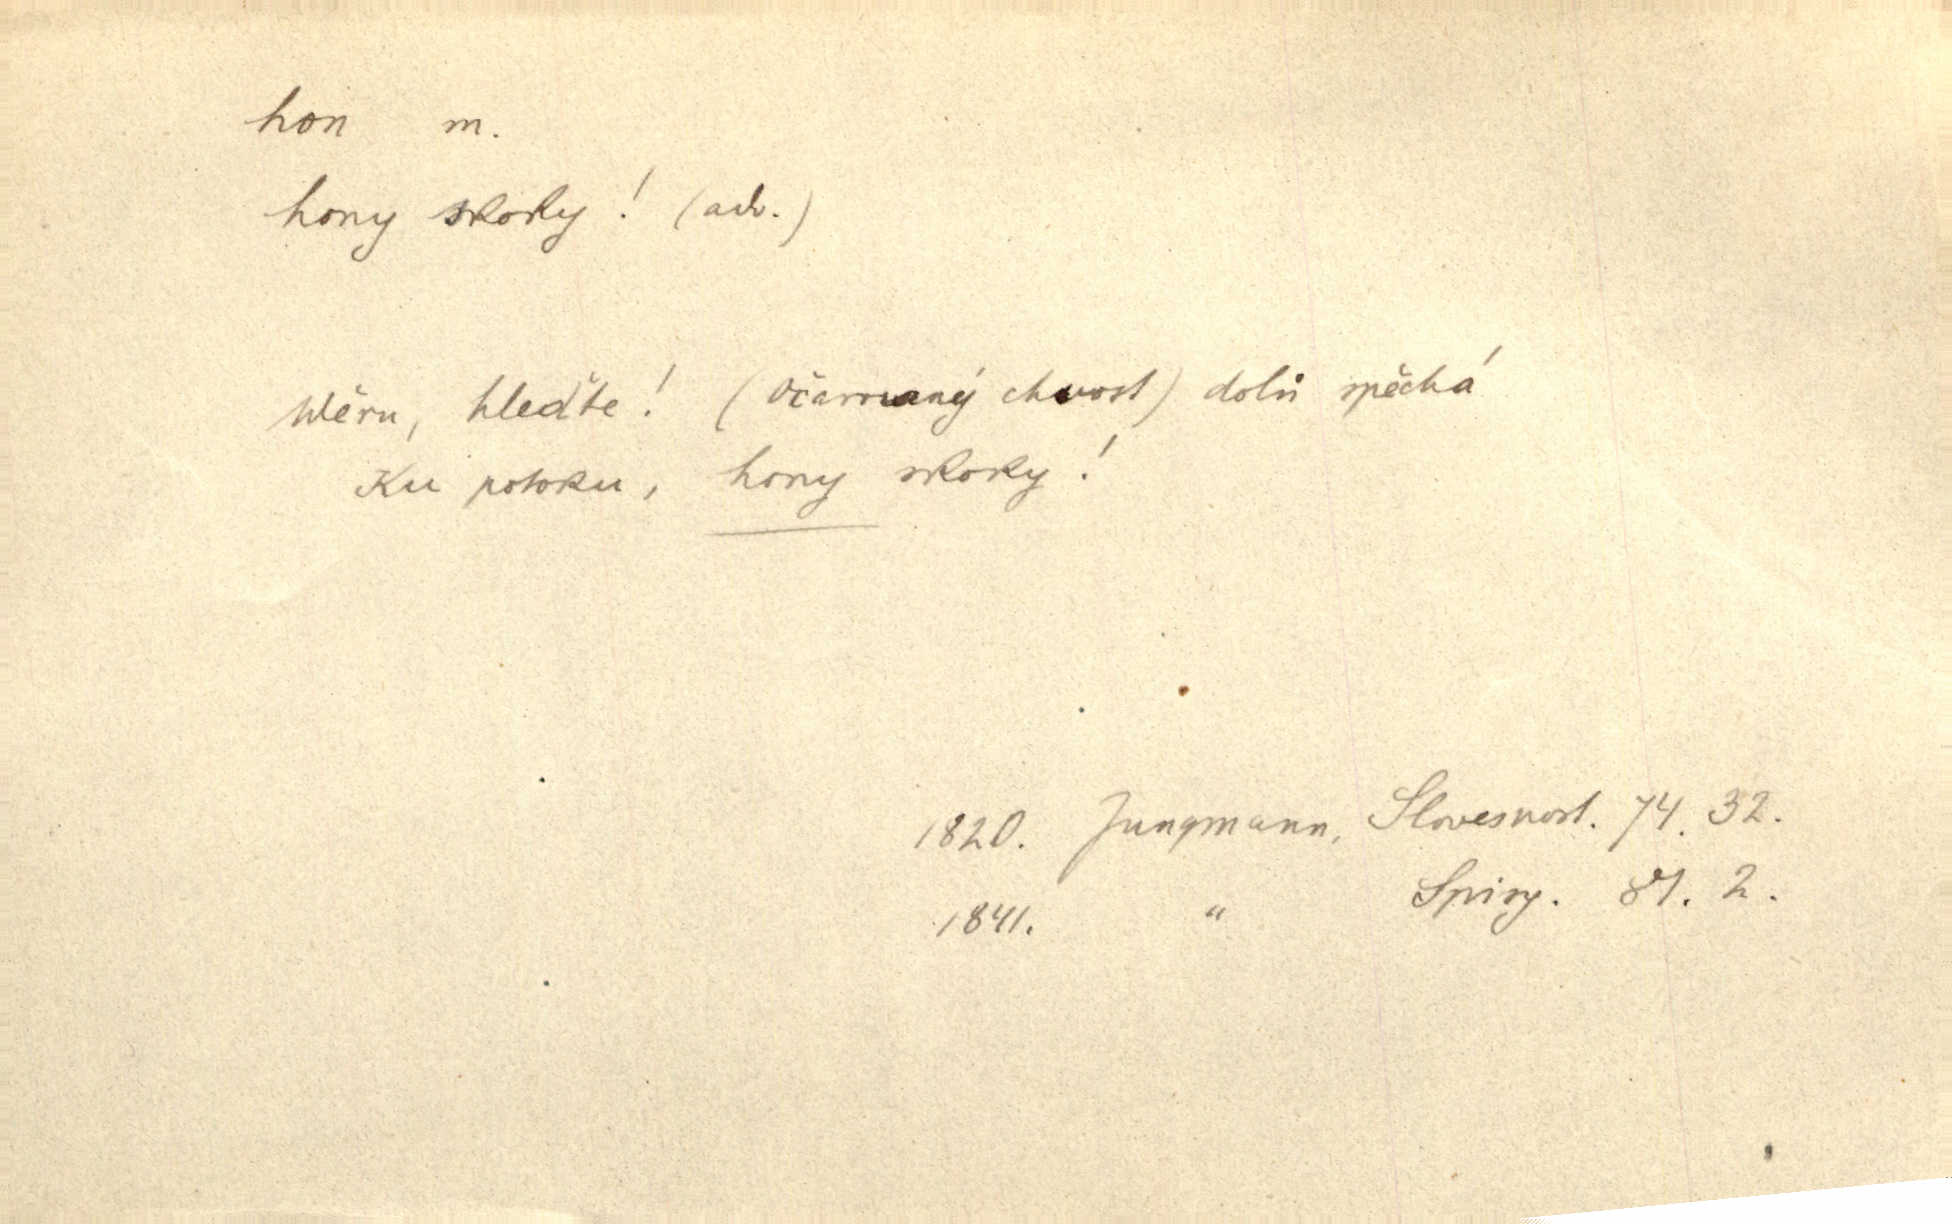 hon m.
hony skoky! (adv.)
Wěru, hleďte! (Očarovaný chvost) dolů spěchá
Ku potoku, hony skoky!
1820. Jungmann, Slovesnost. 74. 32.
1841. " Spisy. 81. 2.